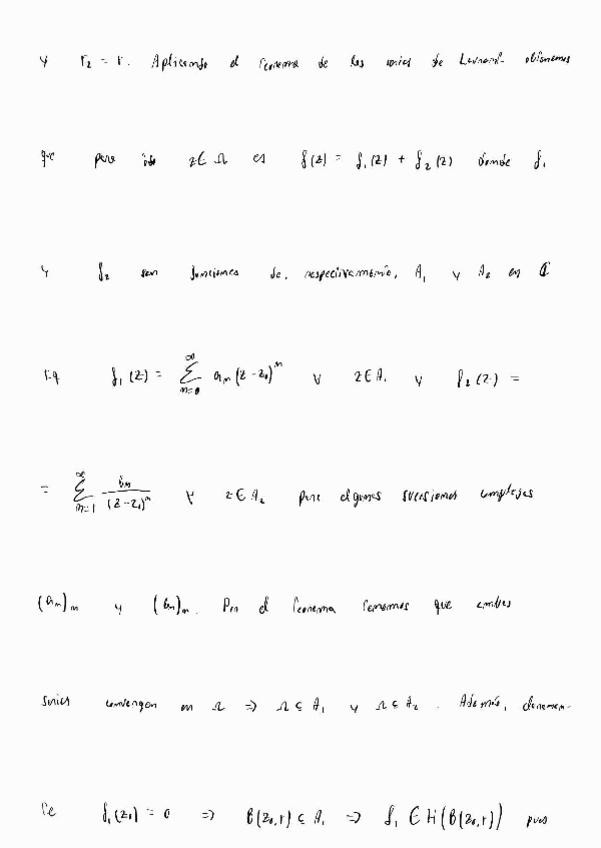 y r₂ = r. Aplicando el Teorema de las series de Laurent obtenemos
que para todo z ∈ Ω es f(z) = f₁(z) + f₂(z) donde f₁
y f₂ son funciones de, respectivamente, A₁ y A₂ en ℂ
t.q f₁(z) = ∑_{n=0}^{∞} aₙ(z - z₀)ⁿ ∀ z ∈ A₁ y f₂(z) =
= ∑_{n=1}^{∞} bₙ/(z - z₀)ⁿ ∀ z ∈ A₂ para algunas sucesiones complejas
(aₙ)ₙ y (bₙ)ₙ. Por el Teorema tenemos que ambas
series convergen en Ω ⇒ Ω ⊆ A₁ y Ω ⊆ A₂. Además, claramen-
te f₁(z₀) = 0 ⇒ B(z₀,r) ⊆ A₁ ⇒ f₁ ∈ H(B(z₀,r)) pues